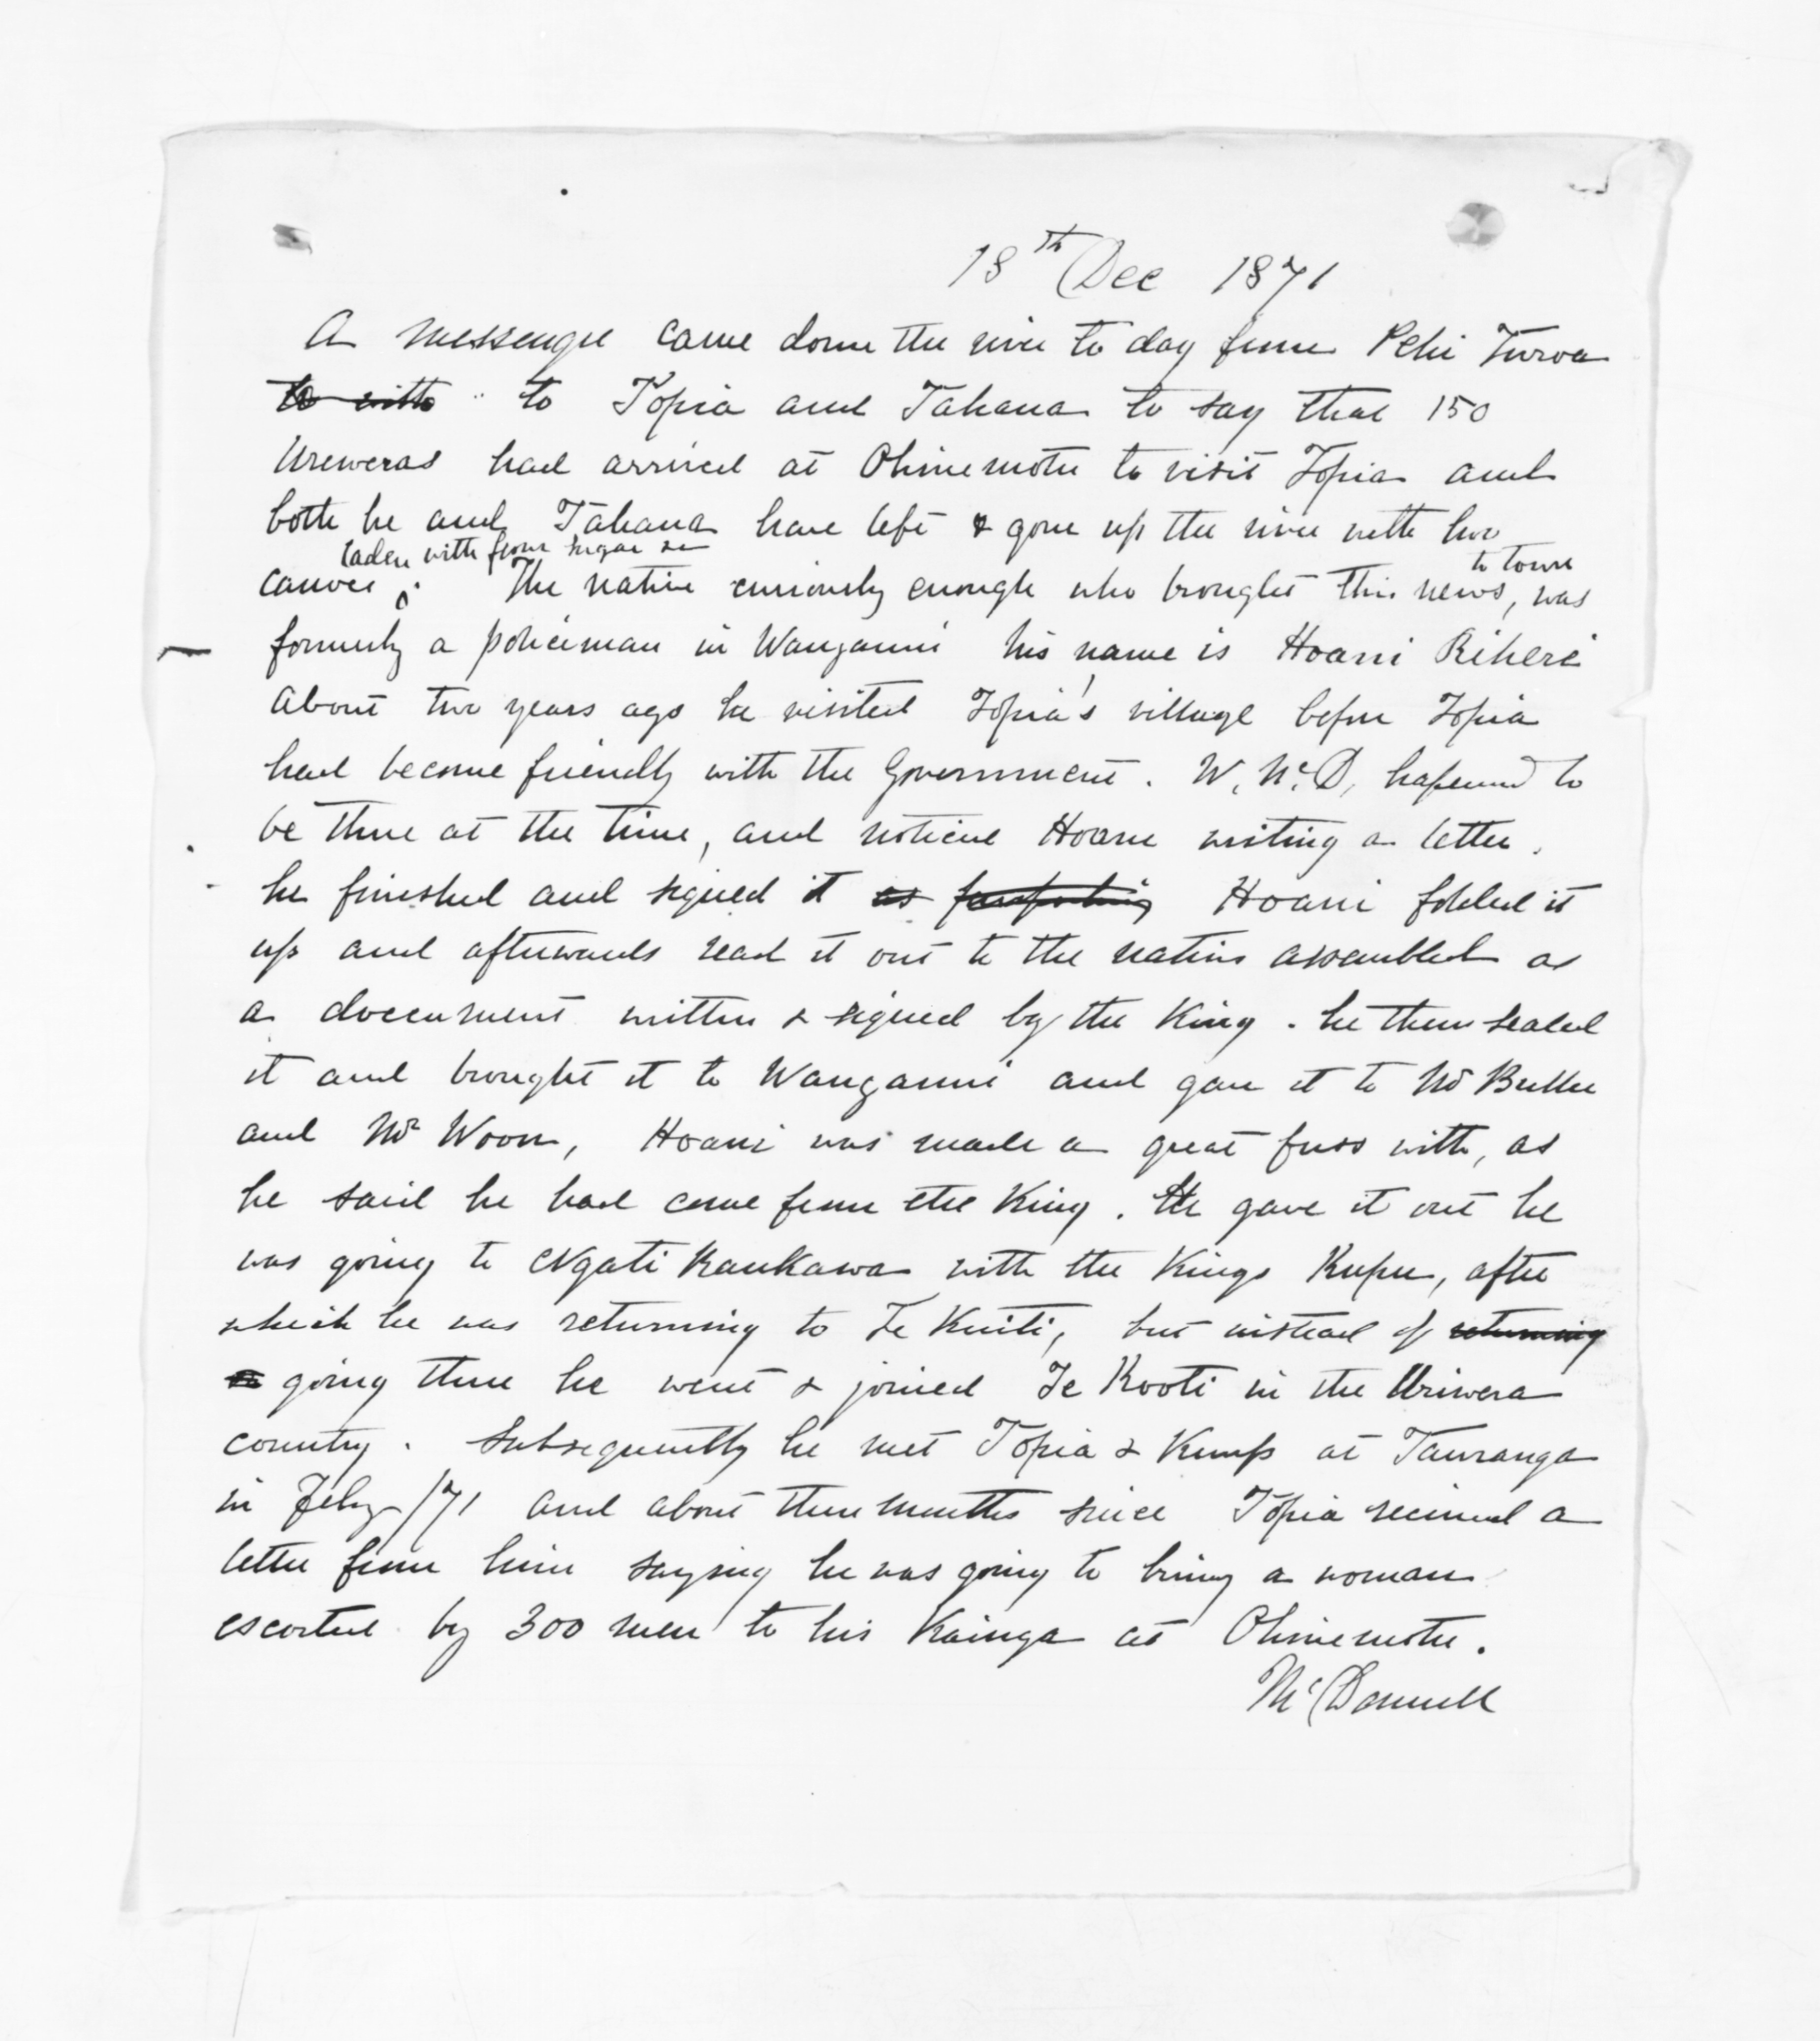 18th Dec 1871
A messenger came down the river to day from Pehi Turoa
to with to Topia and Tahana to say that 150
Ureweras had arrived at Ohinemotu to visit Topia and
both he and Tahana have left & gone up the river with two
laden with flour sugar &c
to town
canoes. The native curiously enough who brought this news, was
formerly a policeman in Wanganui his name is Hoani Riheri
about two years ago he visited Topia's village before Topia
had become friendly with the Government. W. McD, hapened to
be there at the time, and noticed Hoani writing a letter.
he finished and signed it as purporting Hoani folded it
up and afterwards read it out to the natives assembled as
a document written & signed by the King. he then sealed
it and brought it to Wanganui and gave it to Mr Buller
and Mr Woon, Hoani was made a great fuss with, as
he said he had come from the King. He gave it out he
was going to Ngati Raukawa with the Kings Kupu, after
which he was returning to Te Kuiti, but instead of returning
to going there he went & joined Te Kooti in the Uriwera
country. Subsequently he met Topia & Kemp at Tauranga
in Feby /71 and about three months since Topia received a
letter from him saying he was going to bring a woman
escorted by 300 men to his Kainga at Ohinemotu.
McDonnell